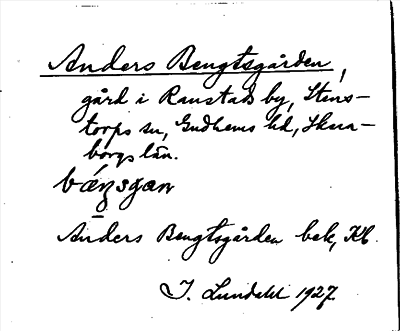 Anders Bengtsgården,
gård i Ranstads by, Stens-
torps sn, Gudhems hd, Skara-
borgs län.
Anders Bengtsgården bek, Kb
I. Lundahl 1927